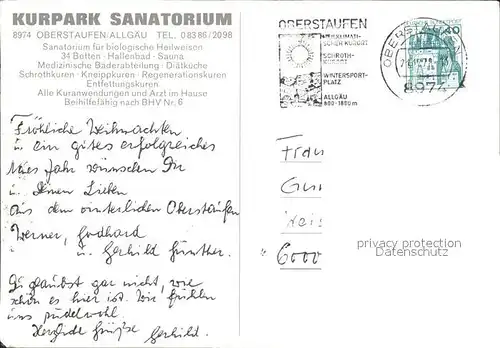 KURPARK SANATORIUM
8974 OBERSTAUFEN/ALLGÄU TEL. 08386/2098
Sanatorium für biologische Heilweisen
34 Betten · Hallenbad · Sauna
Medizinische Baderabteilung · Diätküche
Schrothkuren · Kneippkuren · Regenerationskuren
Entfettungskuren
Alle Kuranwendungen und Arzt im Hause
Beihilfefähig nach BHV Nr. 6
Fröhliche Weihnachten
u. ein gutes erfolgreiches
Neues Jahr wünschen Dir
u. Deinen Lieben
aus dem winterlichen Oberstaufen
Werner, Godhard
u. Gerhild Günther.
Du glaubst gar nicht, wie
schön es hier ist. Wir fühlen
uns pudelwohl.
Herzliche Grüße Gerhild.
OBERSTAUFEN
SCHROTH-
KURORT
WINTERSPORT-
PLATZ
ALLGÄU
800-1800m
OBERSTAUFEN
8974
40
Frau
6000
privacy protection
Datenschutz